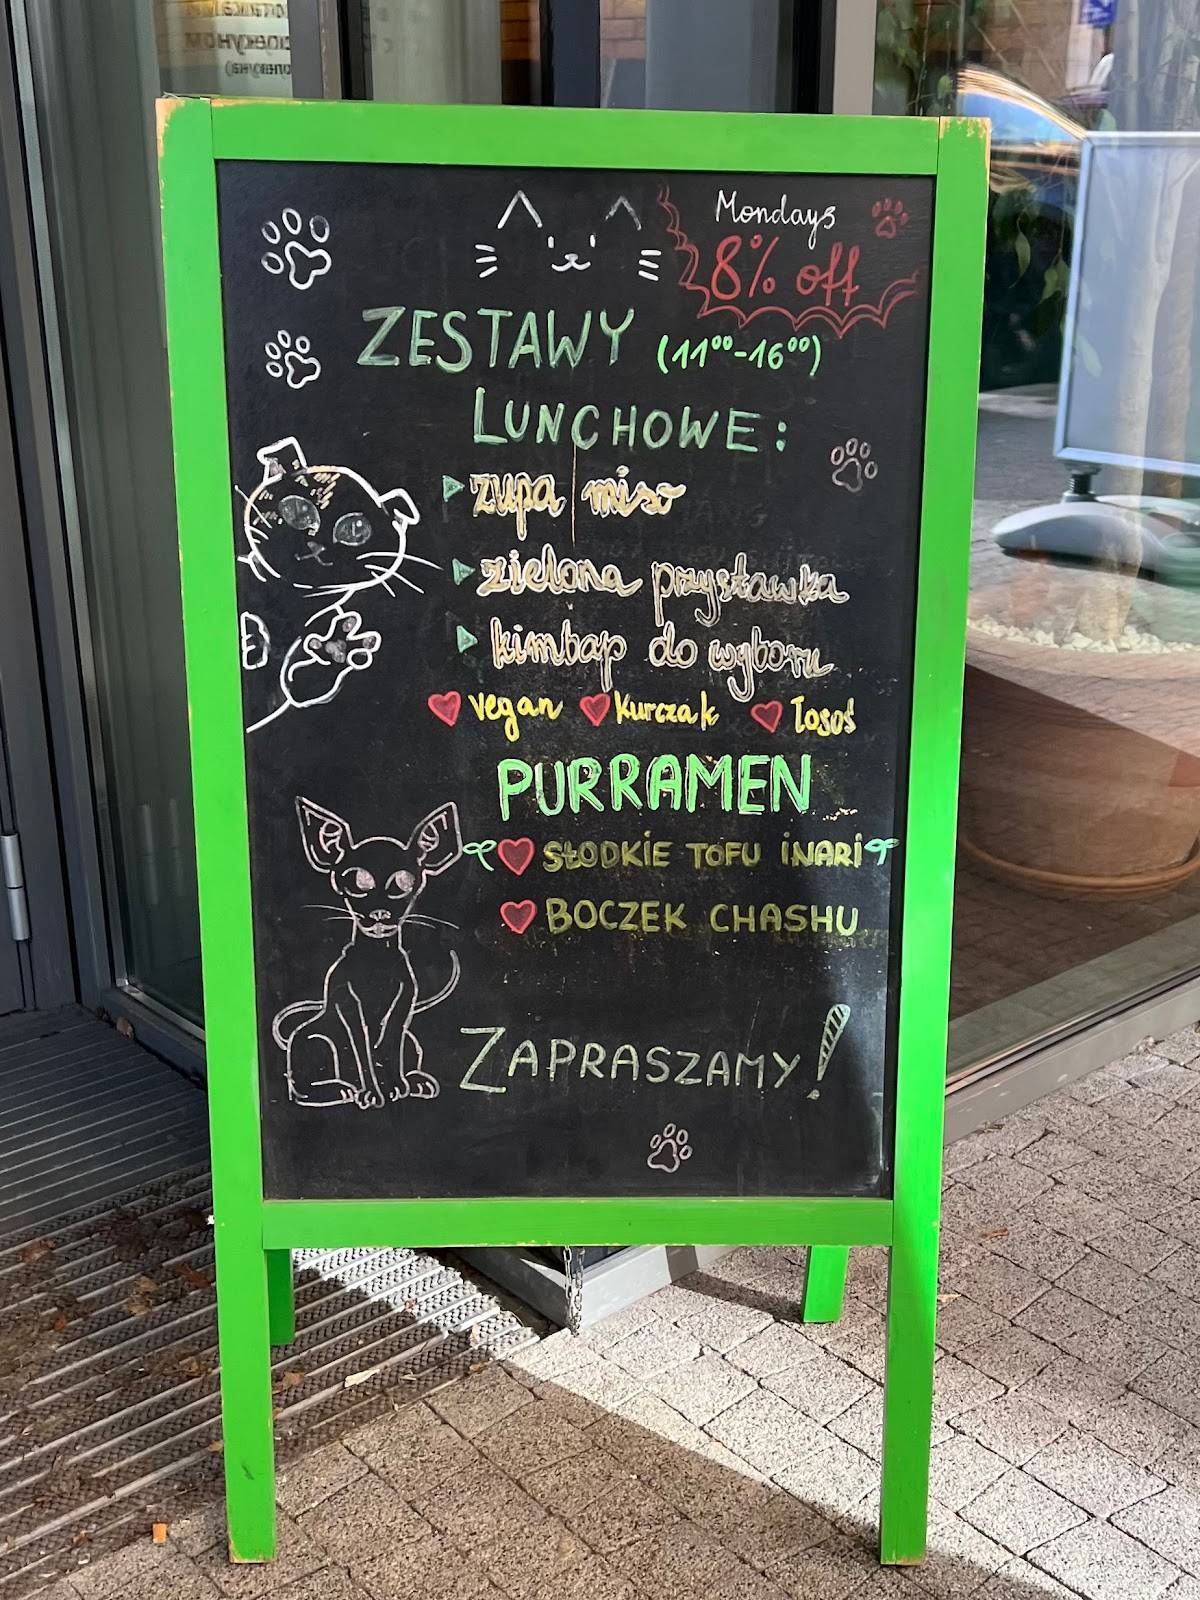 Mondays
8% off
ZESTAWY (11⁰⁰-16⁰⁰)
LUNCHOWE:
zupa miso
zielona przystawka
kimbap do wyboru
vegan kurczak łosoś
PURRAMEN
SŁODKIE TOFU INARI
BOCZEK CHASHU
ZAPRASZAMY!